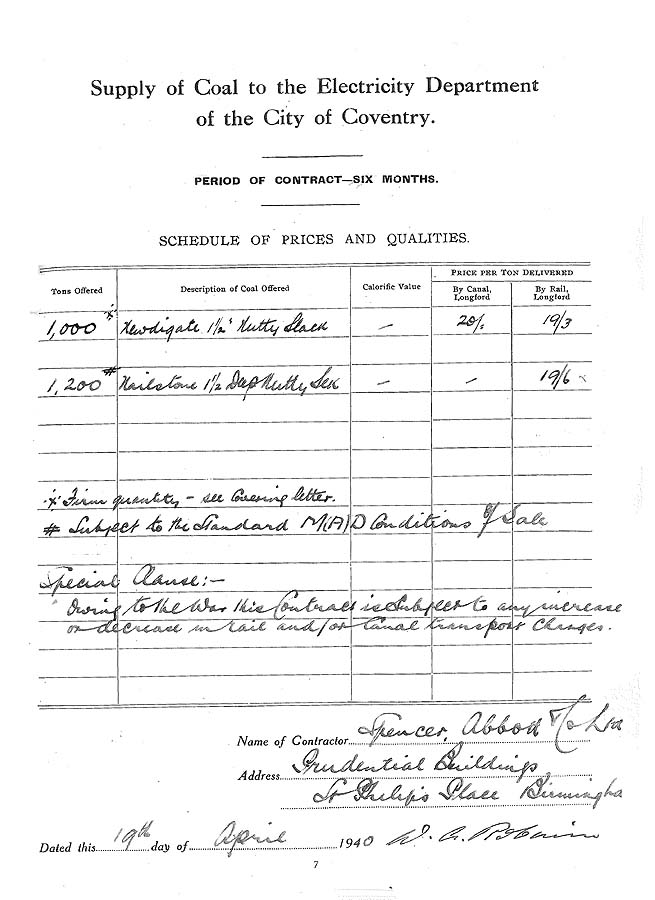 Supply of Coal to the Electricity Department
of the City of Coventry.
PERIOD OF CONTRACT—SIX MONTHS.
SCHEDULE OF PRICES AND QUALITIES.
Tons Offered Description of Coal Offered Calorific Value PRICE PER TON DELIVERED
By Canal, Longford By Rail, Longford
1,000 * Newdigate 1½" Nutty Slack — 20/- 19/3
1,200 # Nailstone 1½ Nutty — — 19/6
* Firm quantity - see Covering letter.
# Subject to the Standard M(A)D Conditions of Sale
Special Clause:-
Owing to the War this Contract is Subject to any increase
or decrease in rail and/or Canal transport Charges.
Name of Contractor Spencer, Abbott & Co Ltd
Address Prudential Buildings
St Philip's Place Birmingha
Dated this 19th day of April 1940 W. A.
7